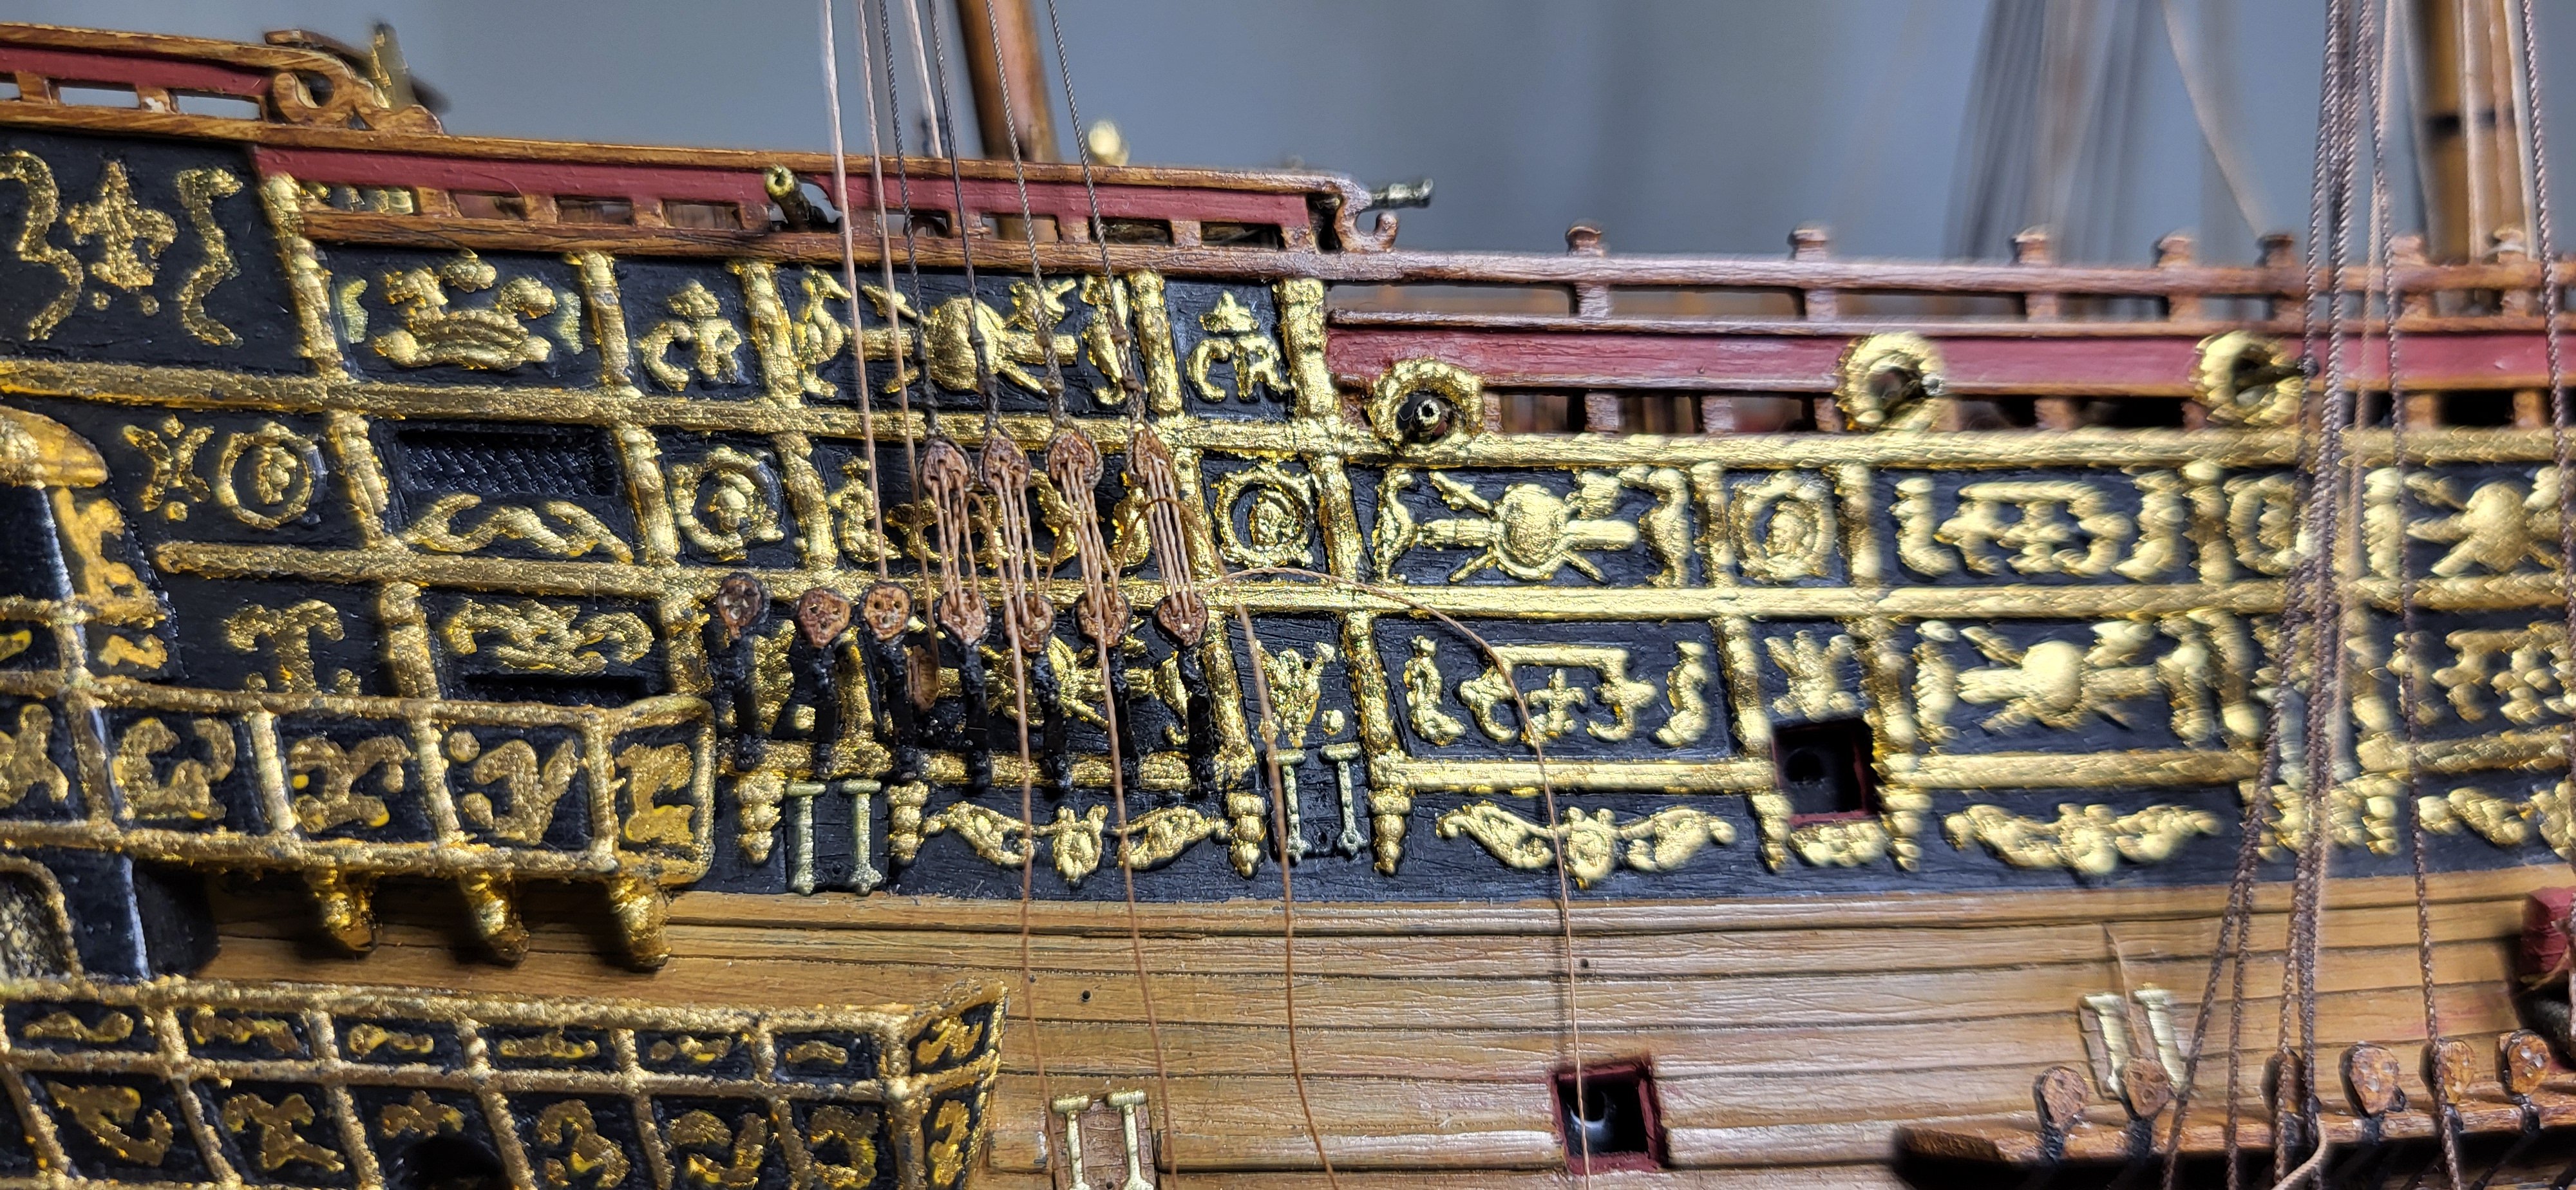 CR
CR